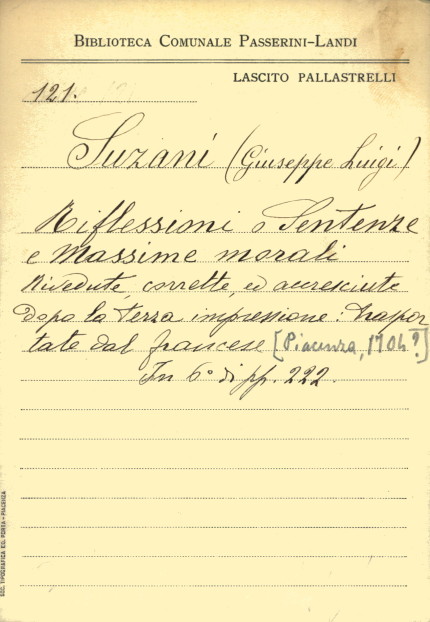 BIBLIOTECA COMUNALE PASSERINI-LANDI
LASCITO PALLASTRELLI
121.
Suzani (Giuseppe Luigi)
Riflessioni o Sentenze
e Massime morali
Rivedute, corrette, ed accresciute
dopo la terza impressione: traspor
tate dal francese [Piacenza, 1704?]
In 6° di pp. 222.
SOC. TIPOGRAFICA ED. PORTA - PIACENZA